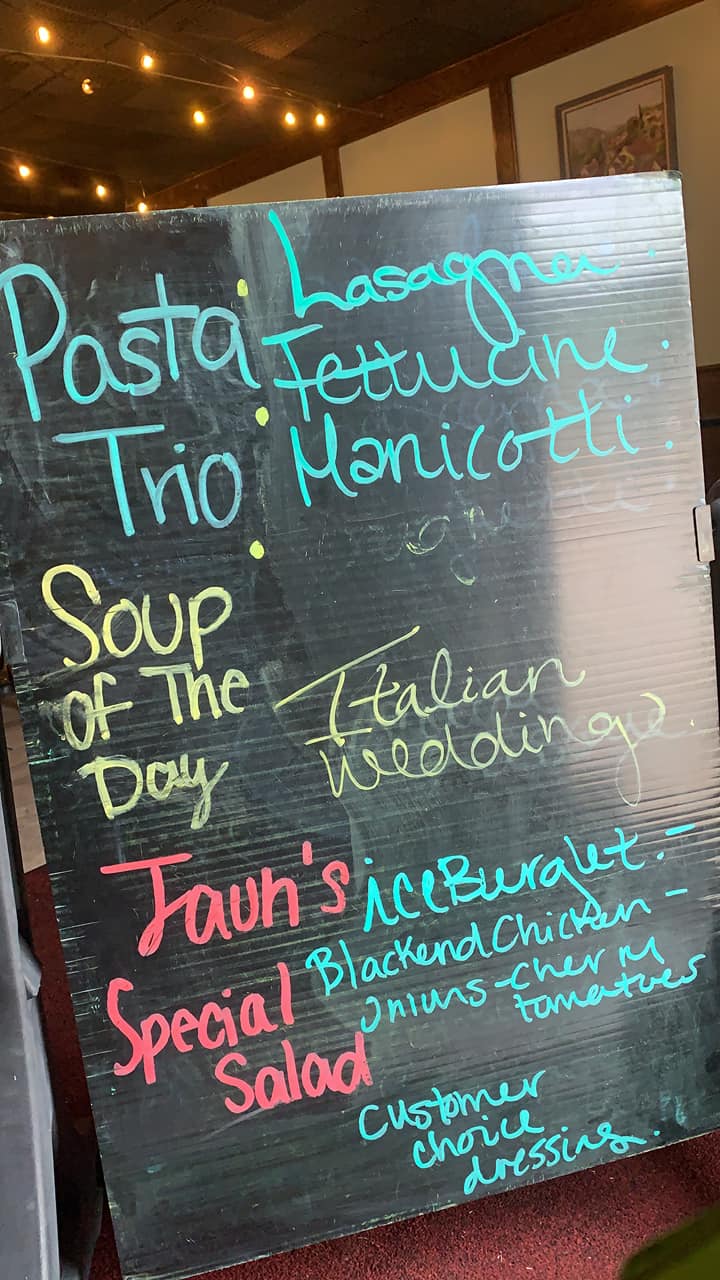 Pasta Trio
Lasagna.
Fettucine.
Manicotti.
Soup of The Day
Italian
Wedding
Jaun's Special Salad
iceBurglet. -
Blackend Chicken -
onions - cherry
tomatoes
Customer
choice
dressing.